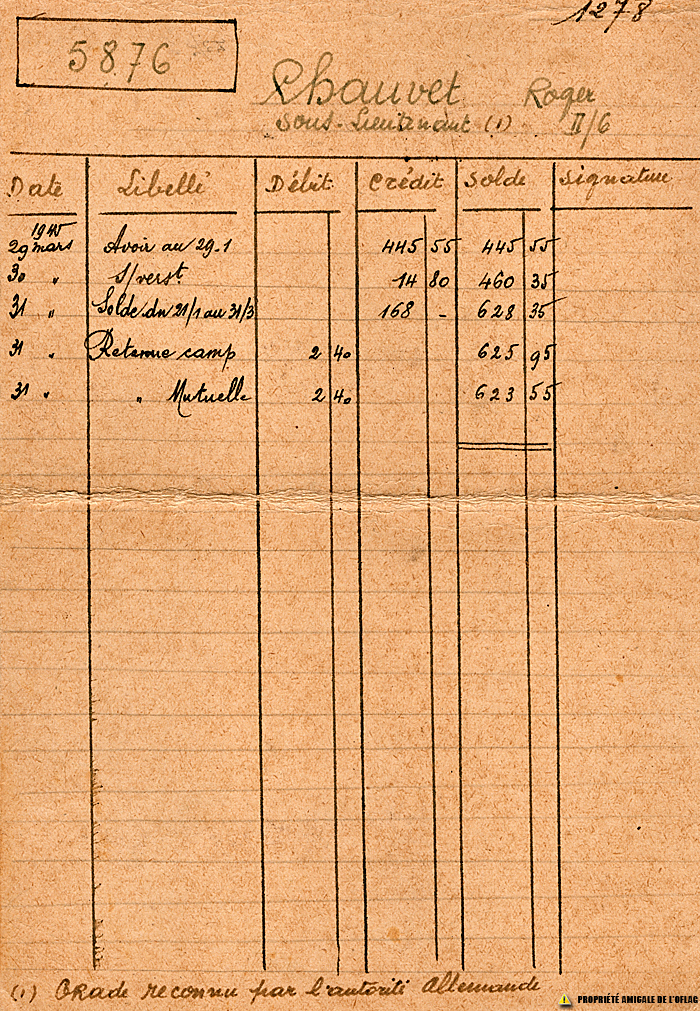 1278
5876
Chauvet Roger
Sous-Lieutenant (1) II/6
Date Libellé Débit Crédit Solde Signature
1945
29 mars Avoir au 29-1 445 55 445 55
30 " S/verst 14 80 460 35
31 " Solde du 21/1 au 31/3 168 - 628 35
31 " Retenue camp 2 40 625 95
31 " " Mutuelle 2 40 623 55
(1) Grade reconnu par l'autorité Allemande
PROPRIÉTÉ AMICALE DE L'OFLAG